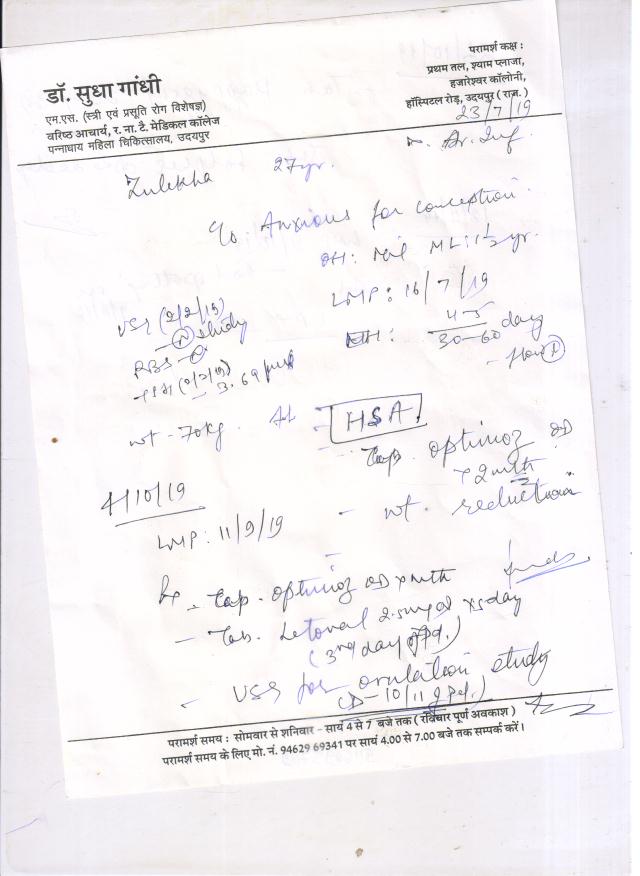 डॉ. सुधा गांधी
एम.एस. (स्त्री एवं प्रसूति रोग विशेषज्ञ)
वरिष्ठ आचार्य, र. ना. टै. मेडिकल कॉलेज
पन्नाधाय महिला चिकित्सालय, उदयपुर
परामर्श कक्ष :
प्रथम तल, श्याम प्लाजा,
हजारेश्वर कॉलोनी,
हॉस्पिटल रोड़, उदयपुर ( राज. )
23/7/19
Zulekha 27yr.
c/o Anxious for conception.
OH: Nil ML: 1½ yr.
LMP: 16/7/19
MH: 45
30-60 days
USG (2/2/19)
- (N) study
RBS -
- 3.69
wt - 70kg.
HSA
Cap. optinoz OD
x 2 mth
- wt. reduction
4/10/19
LMP: 11/9/19
Rx - Cap. optinoz OD x mth
- Tab. Letoval 2.5mg od x 5 day
(3rd day of Pd.)
- USG for ovulation study
(D-10/11 of Pd.)
परामर्श समय : सोमवार से शनिवार - सायं 4 से 7 बजे तक ( रविवार पूर्ण अवकाश )
परामर्श समय के लिए मो. नं. 94629 69341 पर सायं 4.00 से 7.00 बजे तक सम्पर्क करें।